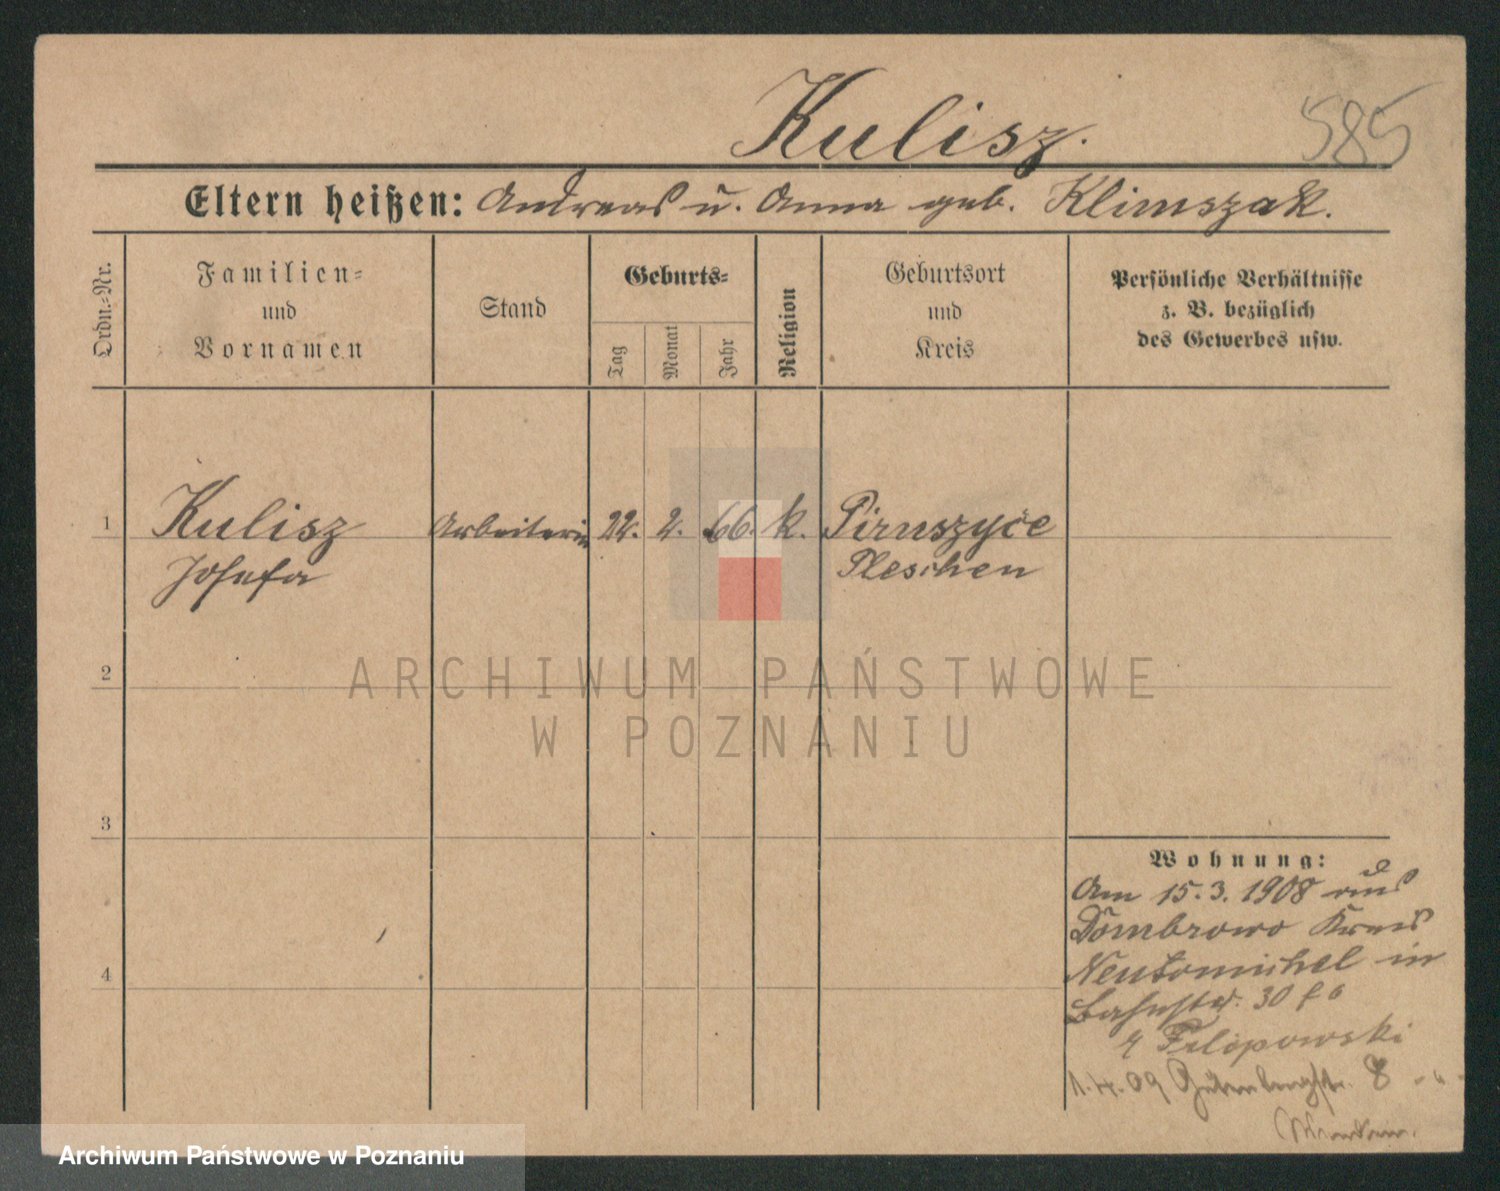 Kulisz.
585
Eltern heißen: Andreas u. Anna geb. Klimszak.
Ordn.-Nr.
Familien-
und
Vornamen
Stand
Geburts-
Tag
Monat
Jahr
Religion
Geburtsort
und
Kreis
Persönliche Verhältnisse
z. B. bezüglich
des Gewerbes usw.
1 Kulisz Arbeiterin 22. 2. 66. k. Piruszyce
Josefa Pleschen
2
ARCHIWUM PAŃSTWOWE
W POZNANIU
3
Wohnung:
Am 15.3.1908 aus
Dombrowo Kreis
Neutomischel in
Bahnstr. 30
Filipowski
1.4.09 Gutenbergstr. 8
4
Archiwum Państwowe w Poznaniu